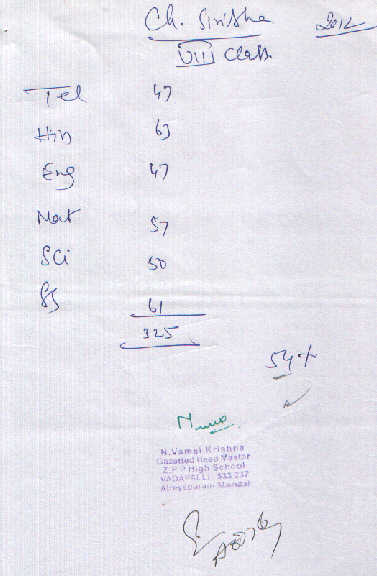 Ch. Sirisha 2012
VII Class
Tel 47
Hin 63
Eng 47
Mat 57
SCi 50
SS 61
325
54%
N. Vamsi Krishna
Gazetted Head Master
Z P P High School
VADAPALLI - 533 237
Atreyapuram Mandal